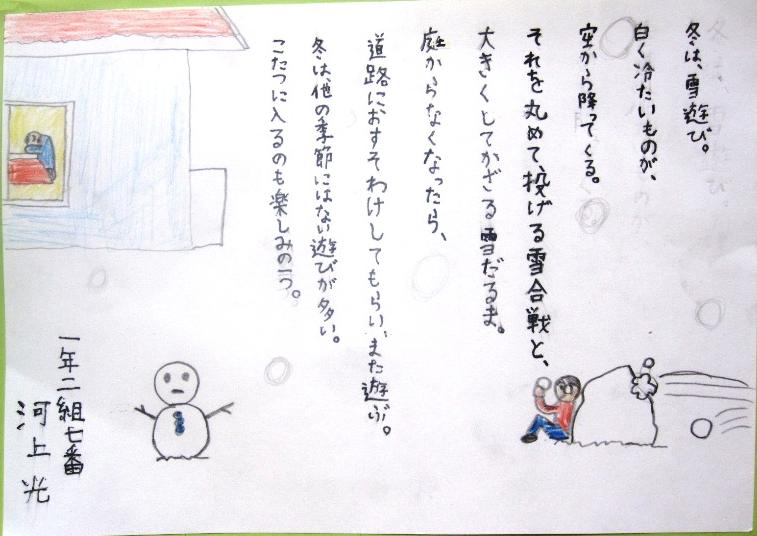 冬は、雪遊び。
白く冷たいものが、
空から降ってくる。
それを丸めて、投げる雪合戦と、
大きくしてかざる雪だるま。
庭からなくなったら、
道路におすそわけしてもらい、また遊ぶ。
冬は、他の季節にはない遊びが多い。
こたつに入るのも楽しみの一つ。
一年二組七番
河上光